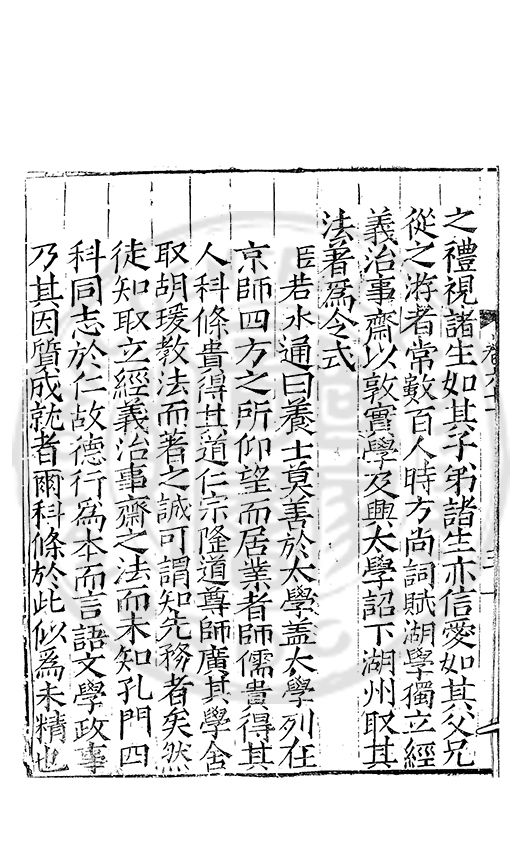 之禮視諸生如其子弟諸生亦信愛如其父兄
從之游者常數百人時方尚詞賦湖學獨立經
義治事齋以敦實學及興太學詔下湖州取其
法著爲令式
臣若水通曰養士莫善於太學盖太學列在
京師四方之所仰望而居業者師儒貴得其
人科條貴得其道仁宗隆道尊師廣其學舍
取胡瑗教法而著之誠可謂知先務者矣然
徒知取立經義治事齋之法而未知孔門四
科同志於仁故德行爲本而言語文學政事
乃其因質成就者爾科條於此似爲未精也